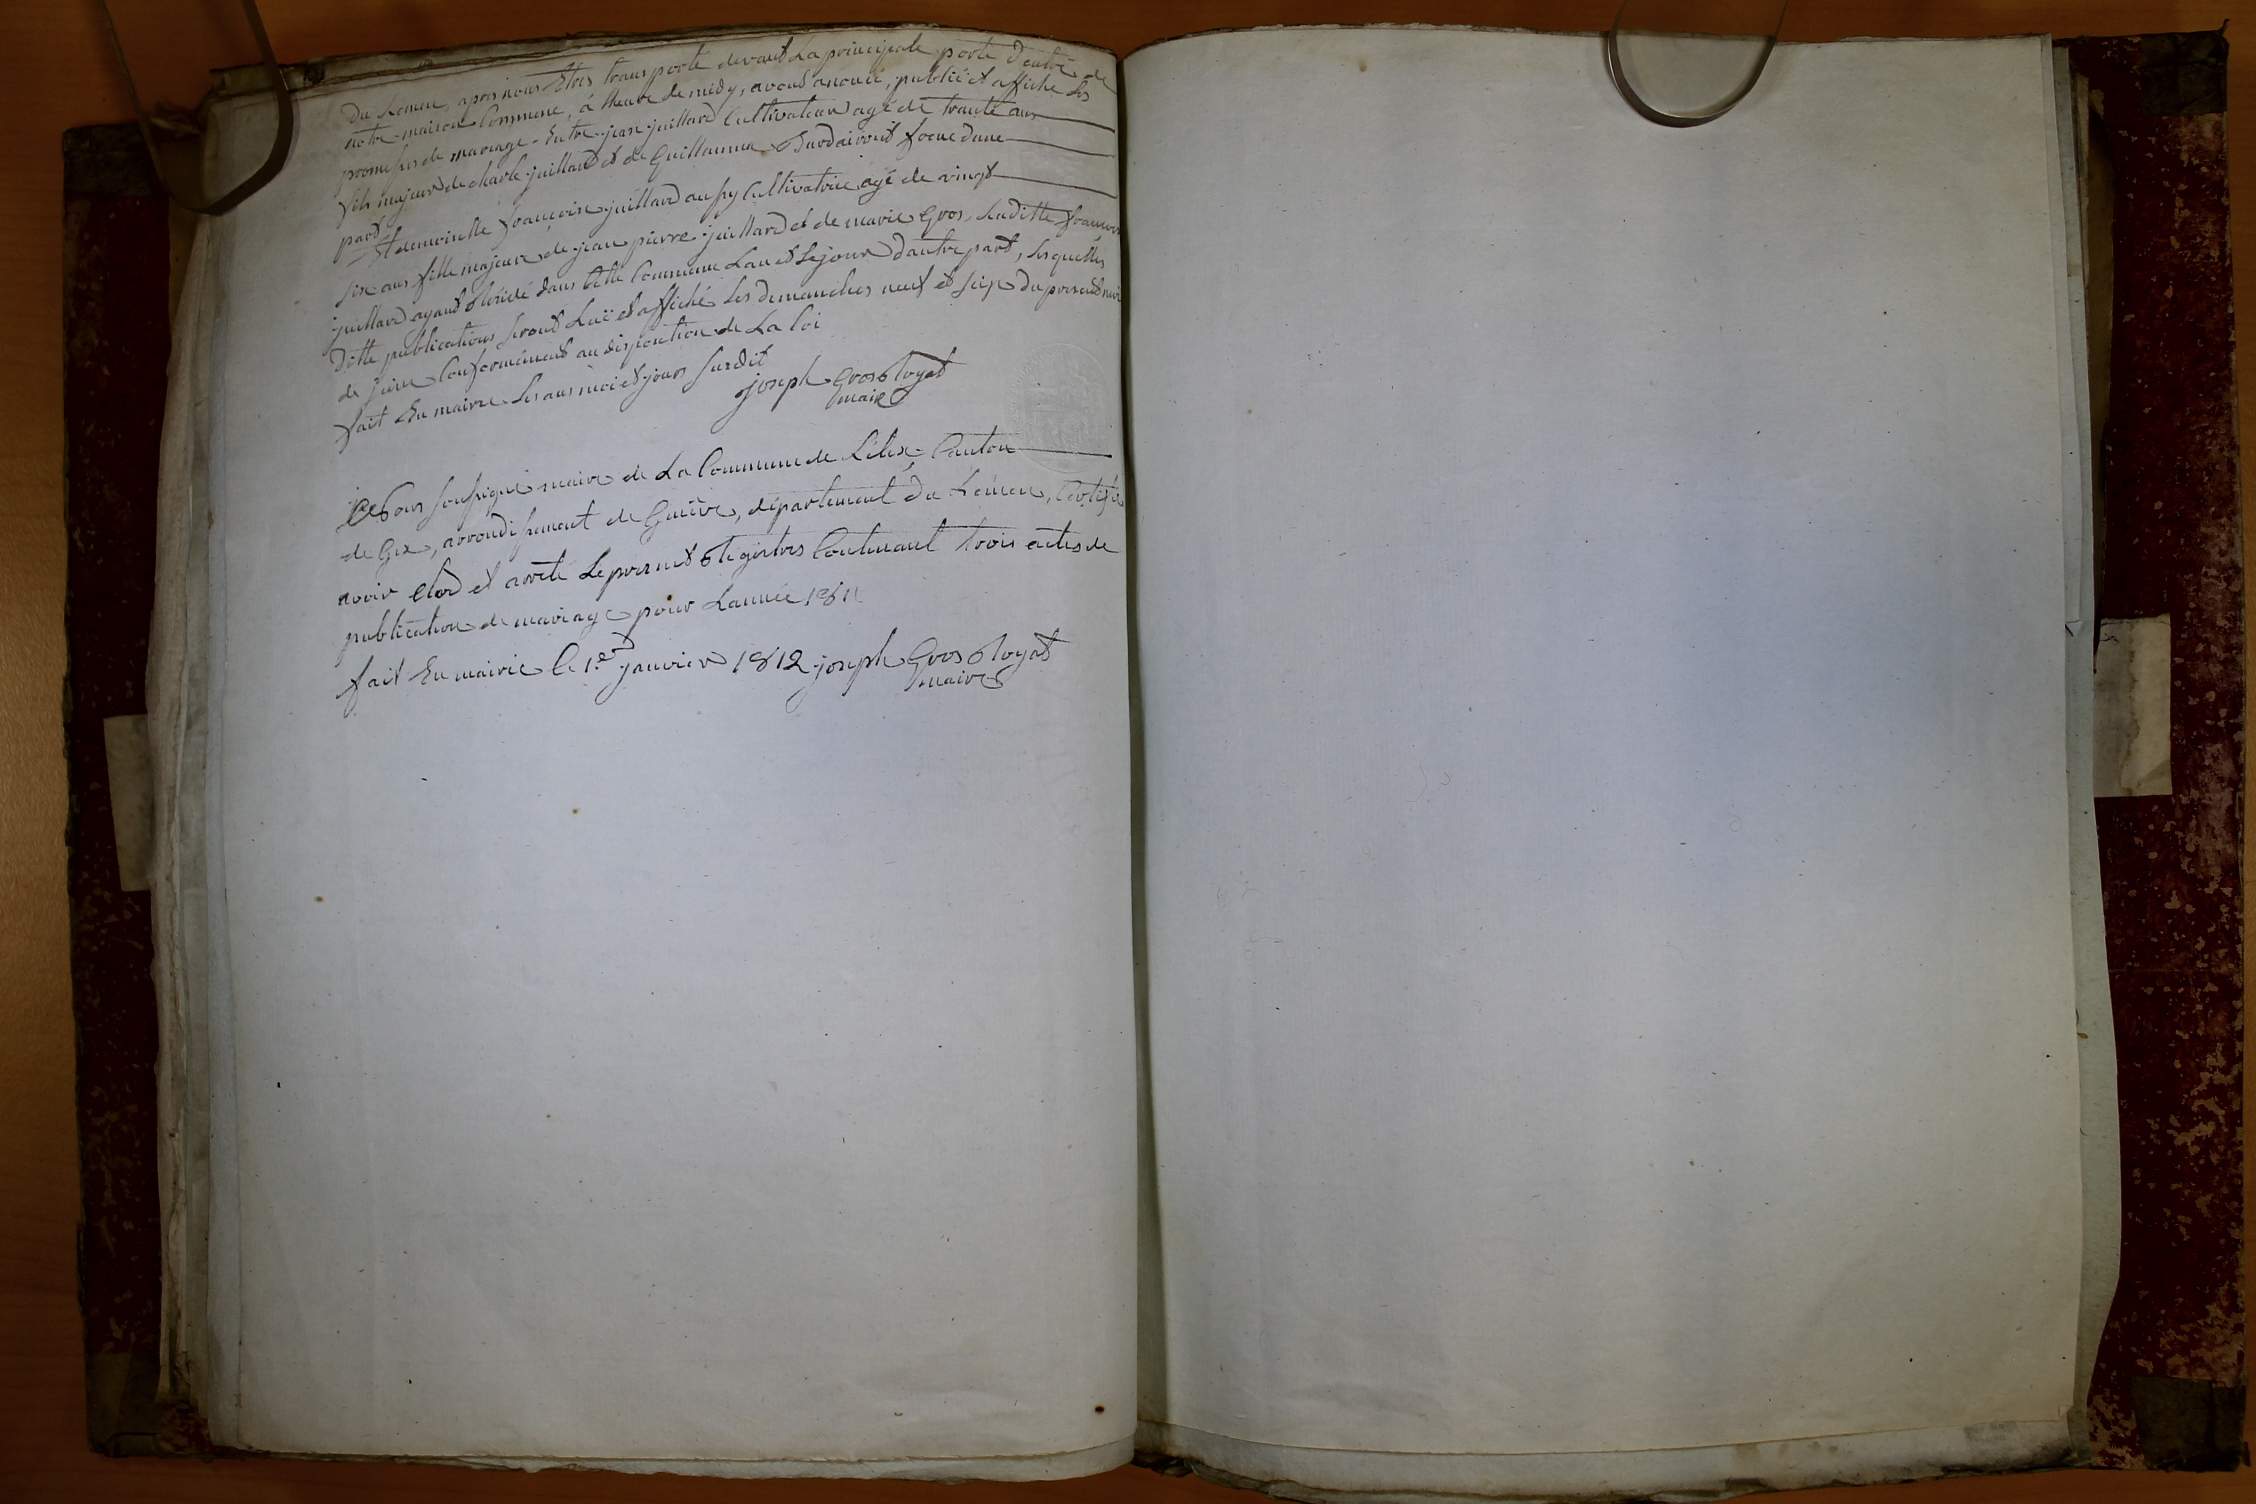 Du Léman, apres nous Etres transporté devant La principale porte D'entré de
notre maison Commune, á lheure de midy, avons anoncé, publié et affiche Les
promesses de mariage Entre jean juillard Cultivateur agé de trante ans
fils majeur de charle juillard et de Guillauma d'une
part
Et demoiselle françoise juillard aussy Cultivatrice agé de vingt
six ans fille majeure de jean pierre juillard et de marie Gros, Laditte françoise
juillard ayant Résidé dans Cette Commune Lan et Lejour d'autre part, Lesquelles
Ditte publications seront Luë et affiché Les dimanches neuf et seize du present moi
de juin Conformément au disposition de La Loi
fait En mairie Les ans moi et jours susdit
joseph Gros Royat
maire
soussigné maire de La Commune de Lélex Canton
de Gex, arrondissement de Genève, département du Léman, Certifie
avoir Clod et arrété Le present Régistres Contenant trois actes de
publication de mariage pour Lannée 1811
fait En mairie le 1.er janvier 1812 joseph Gros Royat
maire